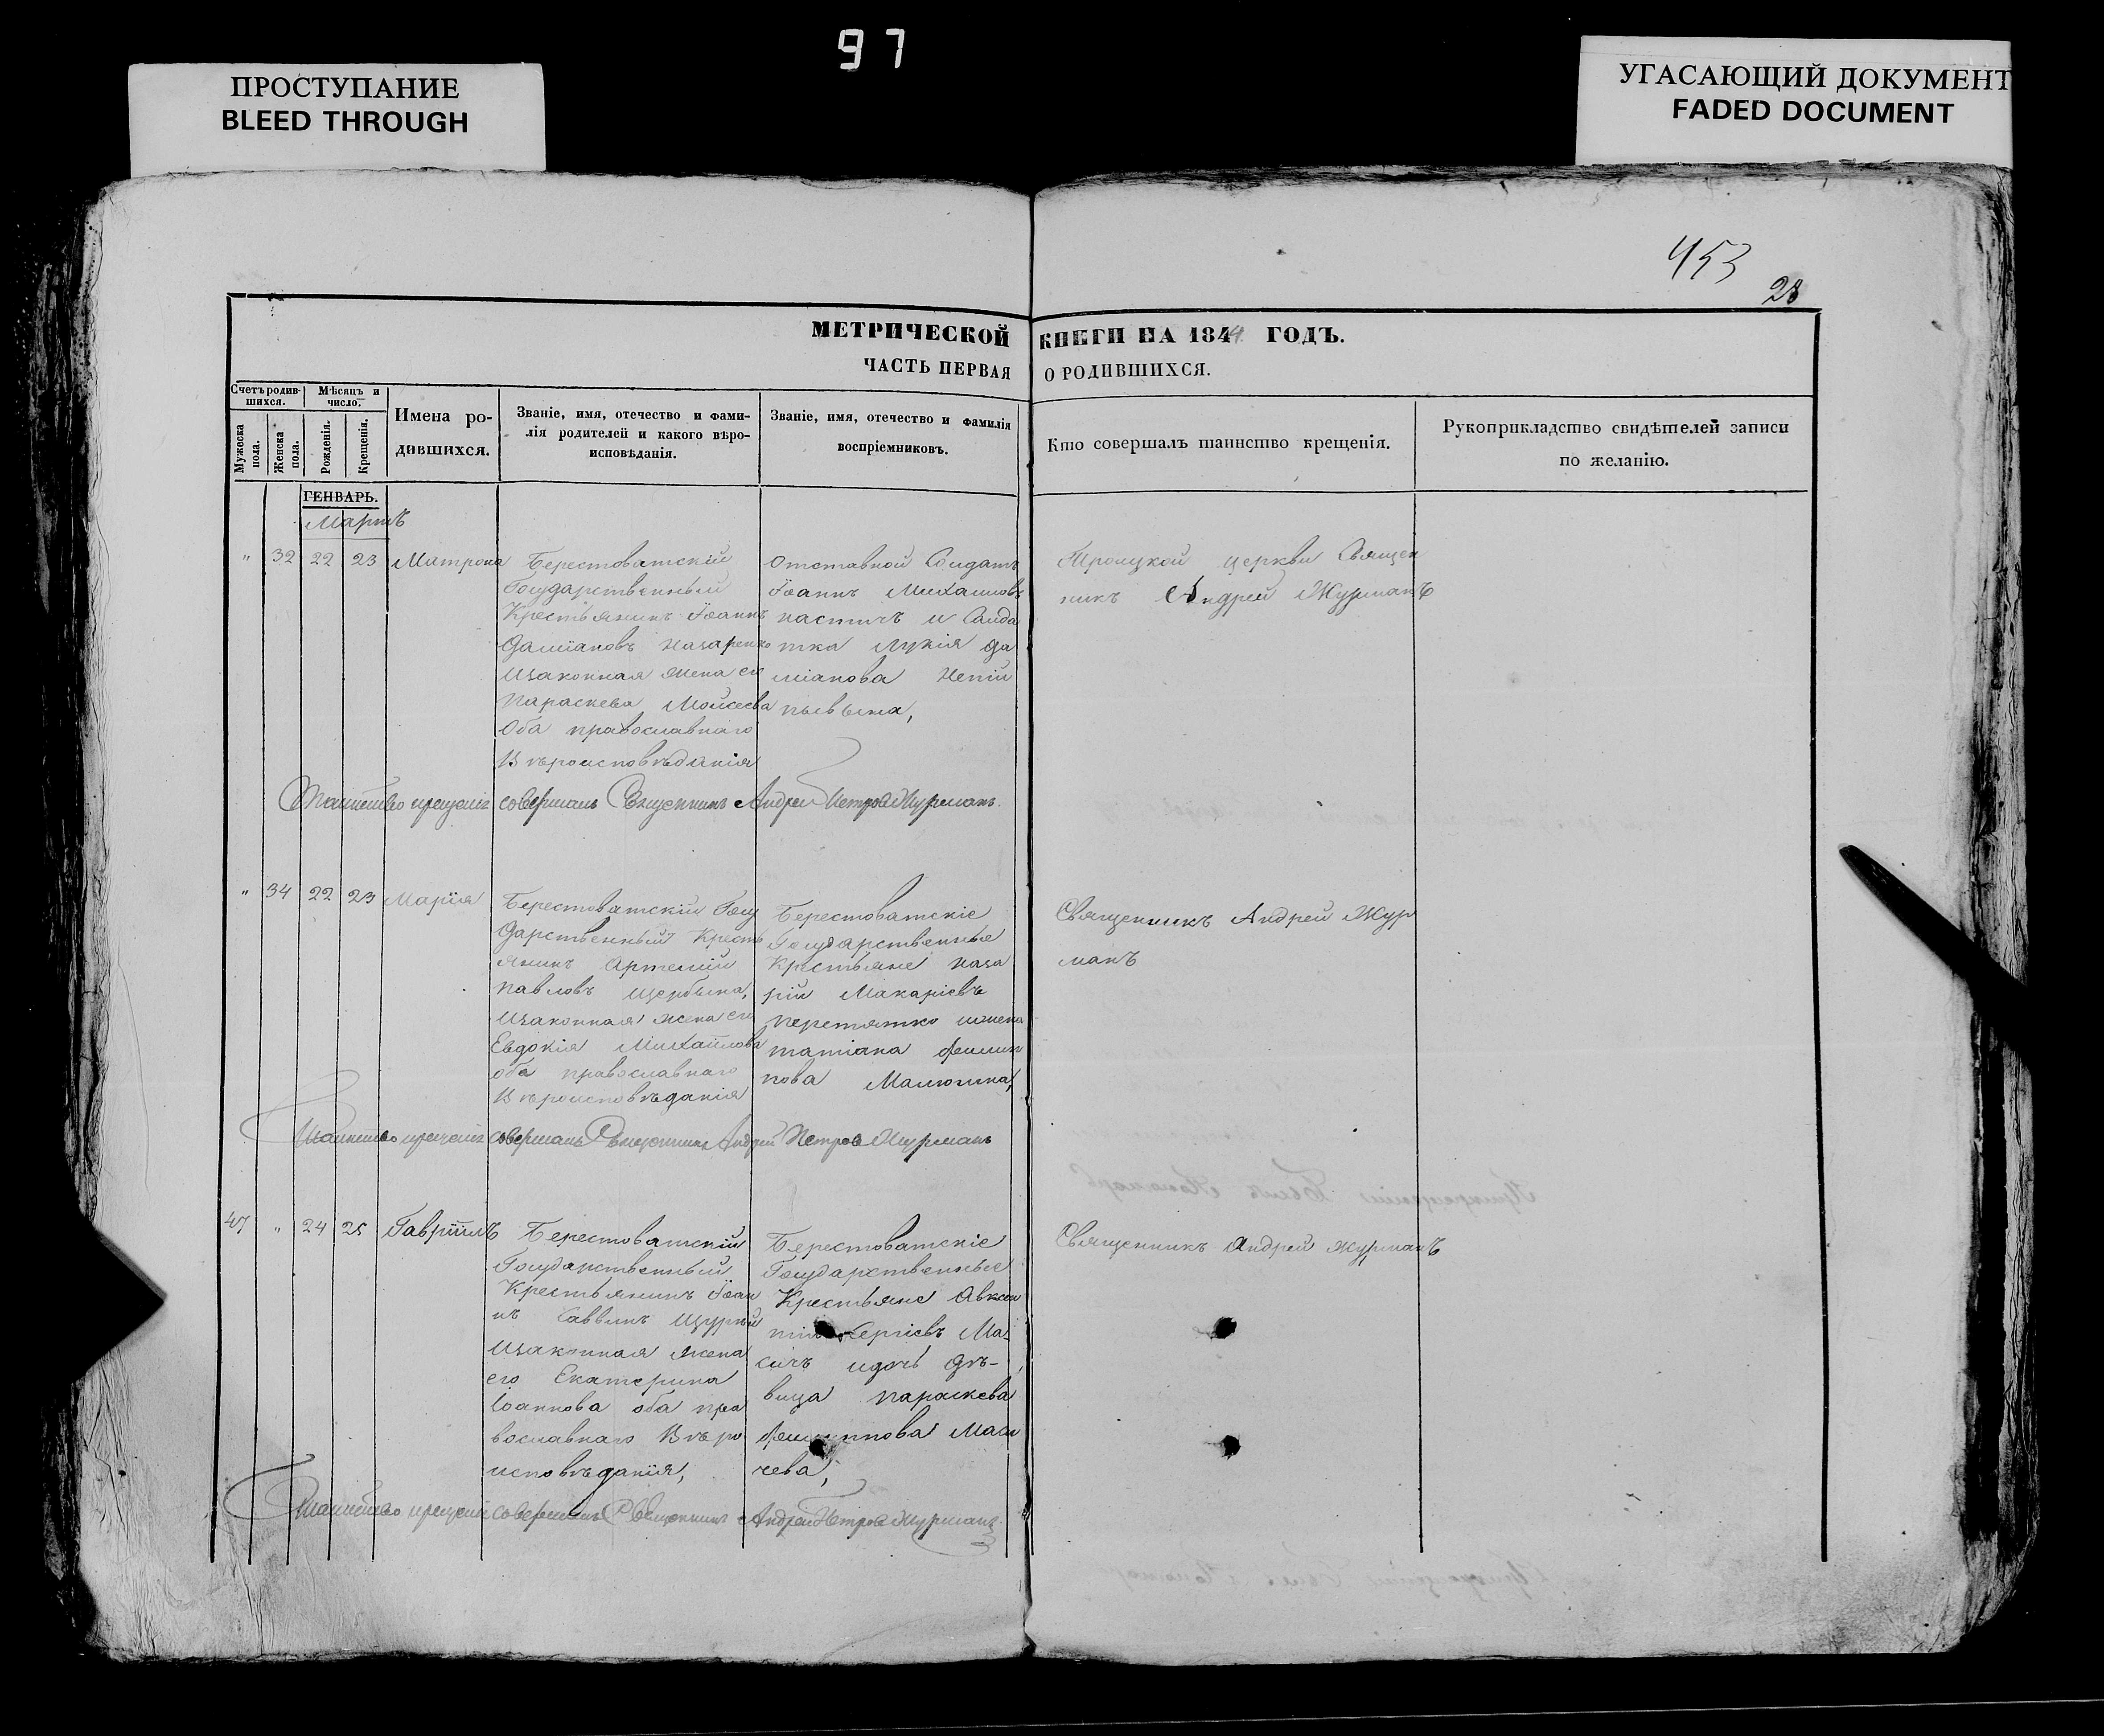 97
ПРОСТУПАНИЕ
BLEED THROUGH
УГАСАЮЩИЙ ДОКУМЕНТ
FADED DOCUMENT
453
28
МЕТРИЧЕСКОЙ КНИГИ НА 1844 ГОДЪ.
ЧАСТЬ ПЕРВАЯ О РОДИВШИХСЯ.
Счетъ родив-
шихся.
Мѣсяцъ и
число.
Мужеска
пола.
Женска
пола.
Рожденія.
Крещенія.
Имена ро-
дившихся.
Званіе, имя, отечество и фами-
лія родителей и какого вѣро-
исповѣданія.
Званіе, имя, отечество и фамилія
воспріемниковъ.
Кто совершалъ таинство крещенія.
Рукоприкладство свидѣтелей записи
по желанію.
ГЕНВАРЬ.
Мартъ
" 32 22 23 Матрона
Берестоватскій
Государственный
Крестьянинъ Іоаннъ
Даміановъ Назаренко
Изаконная жена его
Параскева Мойсеева
Оба православнаго
Вѣроисповѣданія
Отставной Солдатъ
Іоаннъ Михаиловъ
и Салда
тка Лукія Да
міанова
Троицкой церкви Священ
никъ Андрей Журманъ
Таинство крещенія совершалъ Священникъ Андрей Петровъ Журманъ.
" 34 22 23 Марія
Берестоватскій Госу
Дарственный Кресть
янинъ Артемій
Павловъ Щербына,
Изаконная жена его
Евдокія Михайлова
оба православнаго
Вѣроисповѣданія
Берестоватскіе
Государственные
Крстьяне Наза
рій Макаріевъ
Перетятко ижена
татіана Филип
пова
Священникъ Андрей Жур
манъ
Таинство крещенія совершалъ Священникъ Андрей Петровъ Журманъ
47 " 24 25 Гавріилъ
Берестоватскій
Государственный
Крестьянинъ Іоан
нъ Саввинъ Щурый
Изаконная жена
его Екатерина
Іоаннова оба пра
вославнаго Вѣро
исповѣданія,
Берестоватскіе
Государственные
Крестьяне Авксен
тій Сергіевъ Ма-
сичъ идочь Дѣ-
вица Параскева
Филиппова Маси
чева,
Священникъ Андрей Журманъ
Таинство крещенія совершалъ Священникъ Андрей Петровъ Журманъ.